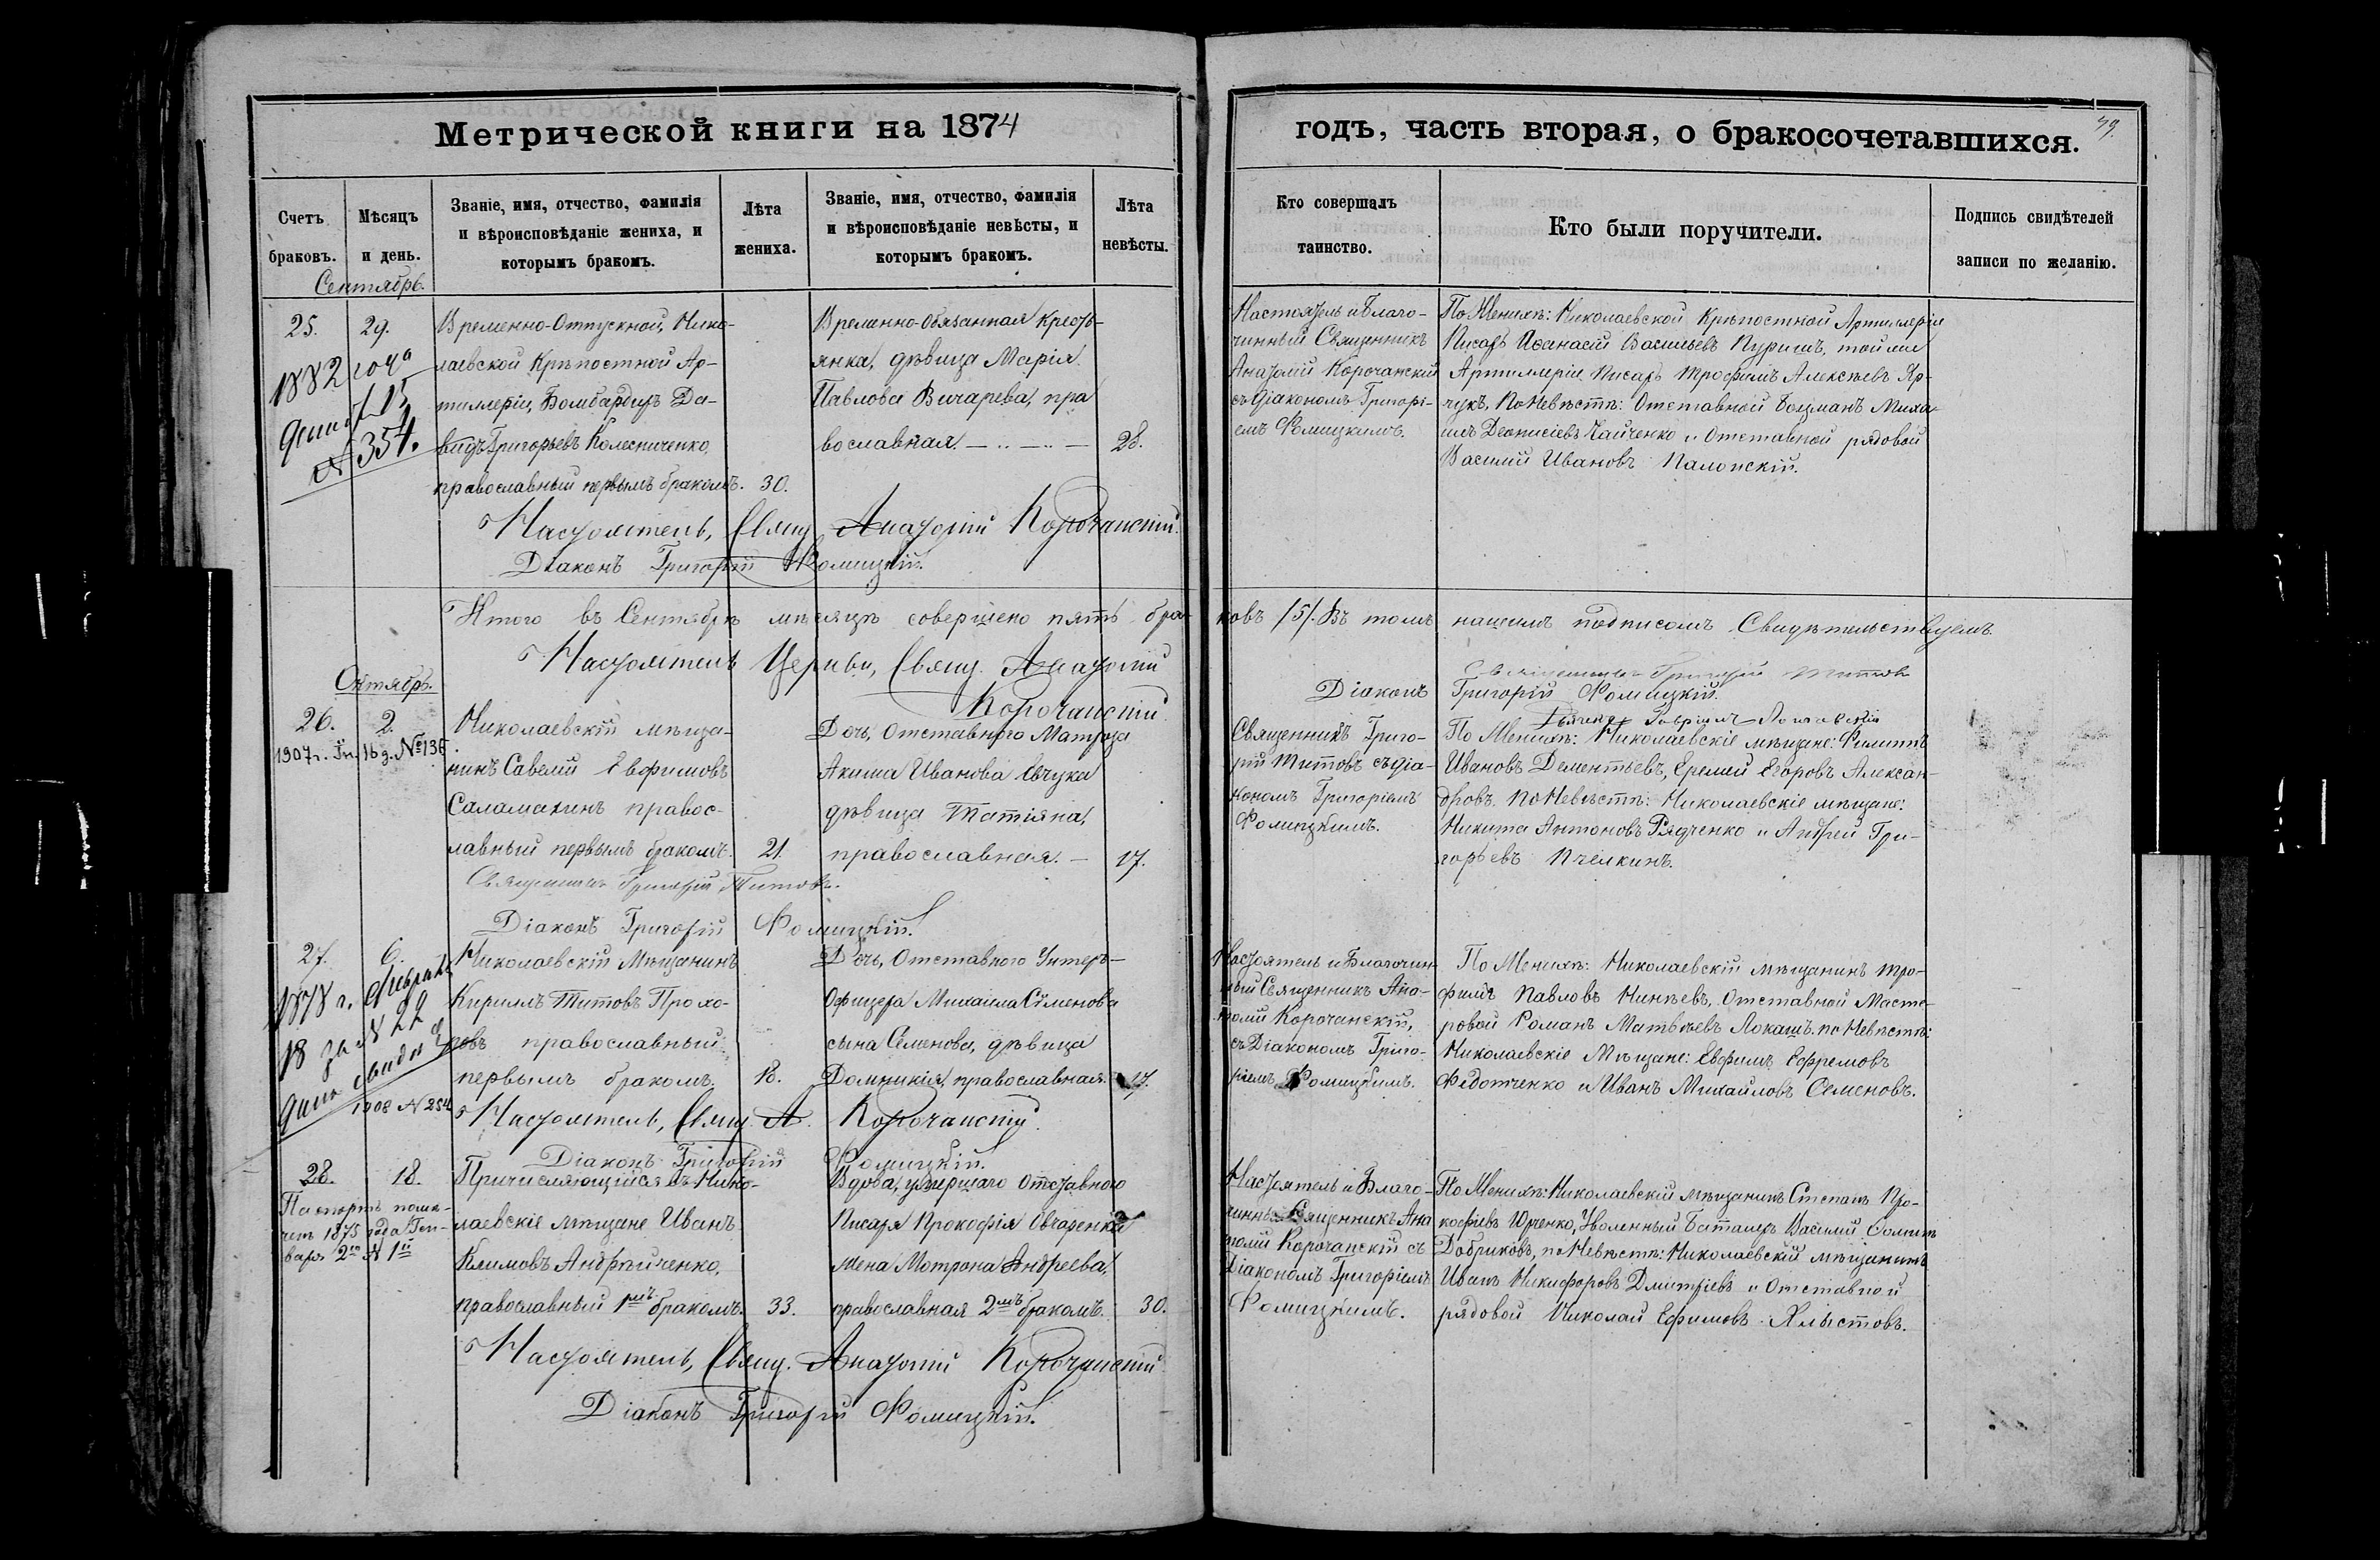 Метрической книги на 1874
годъ, часть вторая, о бракосочетавшихся.
Счетъ браковъ.
Мѣсяцъ и день.
Званіе, имя, отчество, фамилія
и вѣроисповѣданіе жениха, и
которымъ бракомъ.
Лѣта жениха.
Званіе, имя, отчество, фамилія
и вѣроисповѣданіе невѣсты, и
которымъ бракомъ.
Лѣта невѣсты.
Кто совершалъ таинство.
Кто были поручители.
Подпись свидѣтелей
записи по желанію.
Сентябрь.
25.
29.
1882 года
№ 354.
Временно-Отпускной, Нико-
лаевской Крѣпостной Ар-
тиллеріи, Бомбардиръ Да-
видъ Григорьевъ Колесниченко,
православный первымъ бракомъ.
30.
Временно-Обязанная Кресть-
янка, дѣвица Марія
Павлова Вичарева, пра
вославная.
28.
Настоятель и Благо-
чинный Священникъ
Анатолій Корочанскій
съ Діакономъ Григорі-
емъ Фомицкимъ.
По Женихѣ: Николаевской Крѣпостной Артиллеріи
Писарь Аѳанасій Васильевъ Пуришъ, той же
Артиллеріи Писарь Трофимъ Алексѣевъ Яр-
чукъ, По Невѣстѣ: Отставной Боцманъ Миха-
илъ Деонисіевъ Чайченко и Отставной рядовой
Василий Ивановъ Палопскій.
Настоятель, Свящ. Анатолій Корочанскій.
Діаконъ Григорій Фомицкій.
Итого въ Сентябрѣ мѣсяцѣ совершено пять бра-
ковъ /5/. Въ томъ нашимъ подписомъ Свидѣтельствуемъ.
Настоятель Церкви, Свящ. Анатолій
Корочанскій
Священникъ Григорій Титовъ
Діаконъ Григорій Фомицкій.
Октябрь.
26.
2.
1907 г. Ін. 16 д. № 136
Николаевскій мѣща-
нинъ Савелій Евфимовъ
Саламахинъ правос-
лавный первымъ бракомъ.
21.
Дочь, Отставнаго Матроза
Акима Иванова Евчука
дѣвица Татіяна,
православная.
17.
Священникъ Григо-
рій Титовъ съ Діа-
кономъ Григоріемъ
Фомицкимъ.
По Женихѣ: Николаевскіе мѣщане: Филиппъ
Ивановъ Дементьевъ, Еремий Егоровъ Алексан-
дровъ. По Невѣстѣ: Николаевскіе мѣщане:
Никита Антоновъ Рядченко и Андрей Гри-
горьевъ Пчелкинъ.
Священникъ Григорій Титовъ.
Діаконъ Григорій Фомицкій.
27.
6.
1878 г. Февраля
18 за № 22
1908 № 254
Николаевскій Мѣщанинъ
Кирилъ Титовъ Прохо-
ровъ православный
первымъ бракомъ.
18.
Дочь, Отставнаго Унтеръ-
Офицера Михаила Симонова
сына Семенова, дѣвица
Домникія, православная.
17.
Настоятель и Благочин-
ный Священникъ Ана-
толій Корочанскій,
съ Діакономъ Григо-
ріемъ Фомицкимъ.
По Женихѣ: Николаевскій мѣщанинъ Тро-
фимъ Павловъ Минѣевъ, Отставной Масте-
ровой Романъ Матвѣевъ Локашъ. по Невѣстѣ:
Николаевскіе Мѣщане: Евфимъ Ефремовъ
Федотченко и Иванъ Михайловъ Семеновъ.
Настоятель, Свящ. А. Корочанскій.
Діаконъ Григорій Фомицкій.
28.
18.
Паспортъ полу-
ченъ 1875 года Ген-
варя 2го № 1й
Причисляющійся въ Нико-
лаевскіе мѣщане Иванъ
Климовъ Андрѣйченко,
православный 1мъ бракомъ.
33.
Вдова, умершаго Отставного
Писаря Прокофія Овчаренка
жена Мотрона Андреева,
православная 2мъ бракомъ.
30.
Настоятель и Благо-
чинный Священникъ Ана
толій Корочанскій съ
Діакономъ Григоріемъ
Фомицкимъ.
По Женихѣ: Николаевскій мѣщанинъ Степанъ Про-
кофіевъ Юрченко, Уволенный Баталеръ Василий
Добриковъ, по Невѣстѣ: Николаевскій мѣщанинъ
Иванъ Никифоровъ Дмитріевъ и Отставной
рядовой Николай Ефимовъ Хлыстовъ.
Настоятель, Свящ. Анатолій Корочанскій
Діаконъ Григорій Фомицкій.